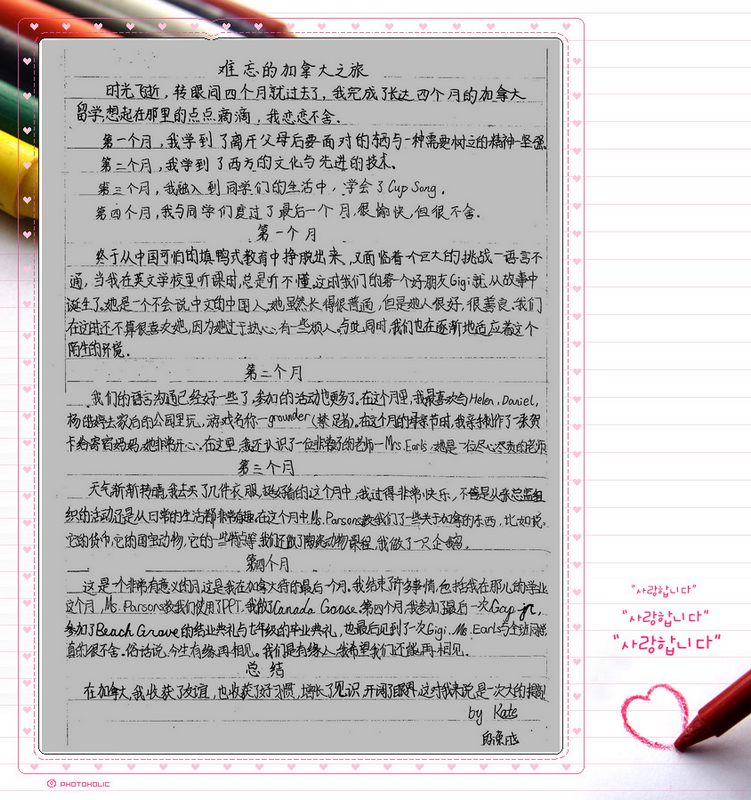 难忘的加拿大之旅
时光飞逝，转眼间四个月就过去了，我完成了长达四个月的加拿大
留学，想起在那里的点点滴滴，我恋恋不舍。
第一个月，我学到了离开父母后要面对的东西与一种需要树立的精神—坚强
第二个月，我学到了西方的文化与先进的技术。
第三个月，我融入到同学们的生活中，学会了Cup Song。
第四个月，我与同学们度过了最后一个月，很愉快，但很不舍。
第一个月
终于从中国可怕的填鸭式教育中挣脱出来，又面临着个巨大的挑战—语言不
通，当我在英文学校里听课时，总是听不懂，这时我们的第一个好朋友Gigi就从故事中
诞生了。她是一个不会说中文的中国人，她虽然长得很普通，但是她人很好，很善良。我们
在这时还不算很喜欢她，因为她过于热心，有一些烦人。与此同时，我们也在逐渐地适应着这个
陌生的环境。
第二个月
我们的语言沟通已经好一些了，参加的活动也更多了。在这个月里，我最喜欢与Helen，Daniel，
杨 去家后的公园里玩，游戏名你—grounder（禁足者）。在这个月的母亲节时，我亲手制作了一张贺
卡给寄宿妈妈，她非常开心。在这里，我还认识了一位非常好的老师—Mrs.Earls，她是一位尽心尽责的老师
第三个月
天气渐渐转晴，我去买了几件衣服，挺好看的 这个月中，我过得非常快乐，不管是从张总监组
织的活动还是从日常的生活都非常有趣。在这个月中，Ms.Parsons教我们了一些关于加拿的东西，比如说：
它的货币，它的国宝动物，它的一些特点等，我们还做了陶瓷动物课程，我做了一只企鹅。
第四个月
这是一个非常有意义的月，这是我在加拿大待的最后一个月。我结束了许多事情，包括我在那儿的学业
这个月，Ms.Parsons教我们使用了PPT，我做了Canada Goose。第四个月，我参加了最后一次Gap jr，
参加了Beach Grove的结业典礼与七年级的毕业典礼，也最后见到了一次Gigi，Ms.Earls与全班同学
真的很不舍。俗话说，今生有缘再相见。我们是有缘人，我希望我们还能再相见。
总结
在加拿大，我收获了友谊，也收获了好习惯，增长了见识，开阔了眼界，这对我来说是一次大的
by Kate
"사랑합니다"
"사랑합니다"
"사랑합니다"
PHOTOHOLIC